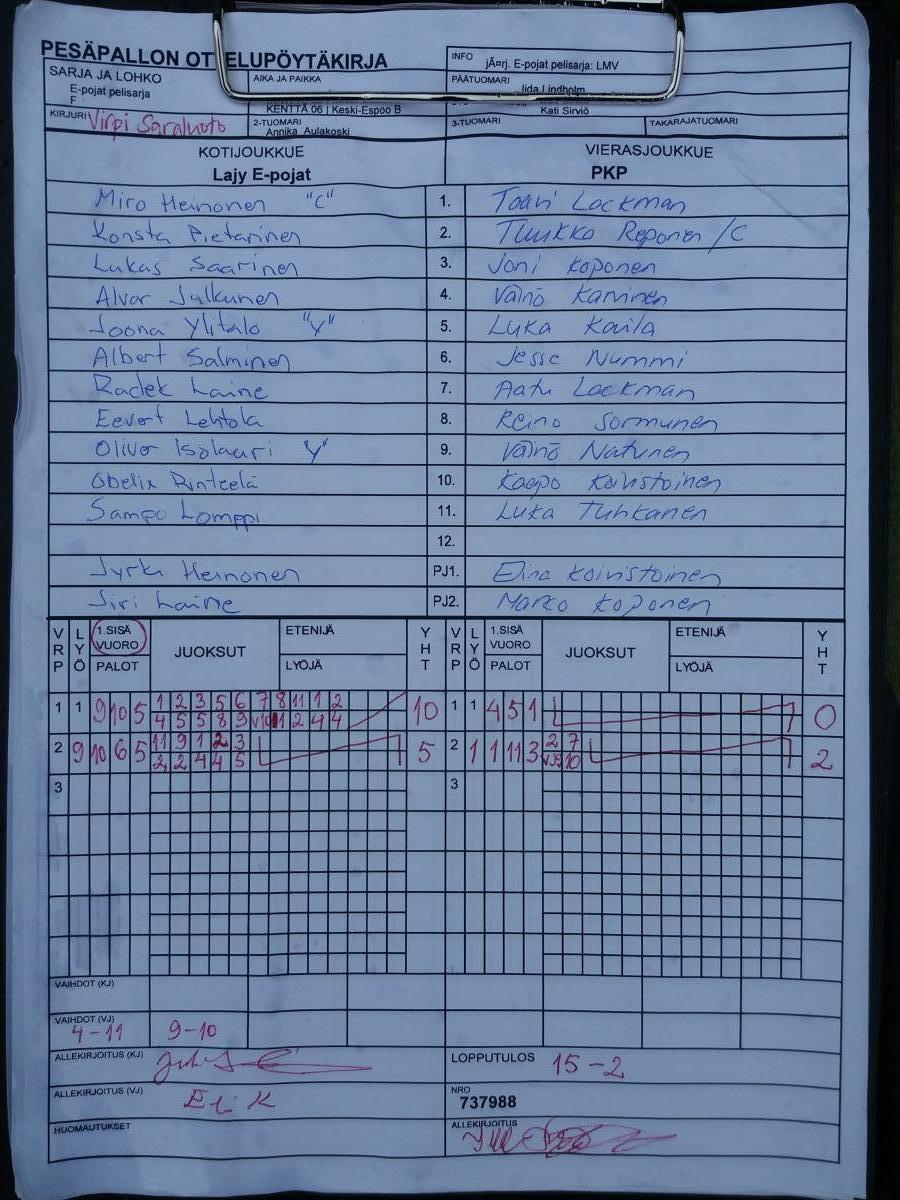 PESÄPALLON OTTELUPÖYTÄKIRJA
INFO jÃ¤rj. E-pojat pelisarja: LMV
SARJA JA LOHKO
E-pojat pelisarja
F
AIKA JA PAIKKA
KENTTÄ 06 | Keski-Espoo B
PÄÄTUOMARI
Iida Lindholm
Kati Sirviö
KIRJURI Virpi Saraluoto
2-TUOMARI
Annika Aulakoski
3-TUOMARI
TAKARAJATUOMARI
KOTIJOUKKUE VIERASJOUKKUE
Lajy E-pojat PKP
Miro Heinonen "C" 1. Taavi Lackman
Konsta Pietarinen 2. Tuukka Reponen /C
Lukas Saarinen 3. Joni Koponen
Alvar Julkunen 4. Väinö Karvinen
Joona Ylitalo "Y" 5. Luka Kaila
Albert Salminen 6. Jesse Nummi
Radek Laine 7. Aatu Lackman
Eevert Lehtola 8. Reino Sormunen
Oliver Isolauri Y 9. Väinö Natunen
Obelix Rintcelä 10. Kaapo Koivistoinen
Sampo Lomppi 11. Luka Tuhkanen
12.
Jyrki Heinonen PJ1. Elina Koivistoinen
Siri Laine PJ2. Marko Koponen
VRP LYÖ 1.SISÄ VUORO PALOT JUOKSUT ETENIJÄ LYÖJÄ YHT VRP LYÖ 1.SISÄ VUORO PALOT JUOKSUT ETENIJÄ LYÖJÄ YHT
1 1 9 10 5 1 2 3 5 6 7 8 11 1 2 10 1 1 4 5 1 0
4 5 5 8 9 V10 11 2 4 4
2 9 10 6 5 11 9 1 2 3 5 2 1 1 11 3 2 7 2
2 2 4 4 5 10
3 3
VAIHDOT (KJ)
VAIHDOT (VJ)
4-11 9-10
ALLEKIRJOITUS (KJ)
LOPPUTULOS 15-2
ALLEKIRJOITUS (VJ) Eli K
NRO
737988
HUOMAUTUKSET
ALLEKIRJOITUS